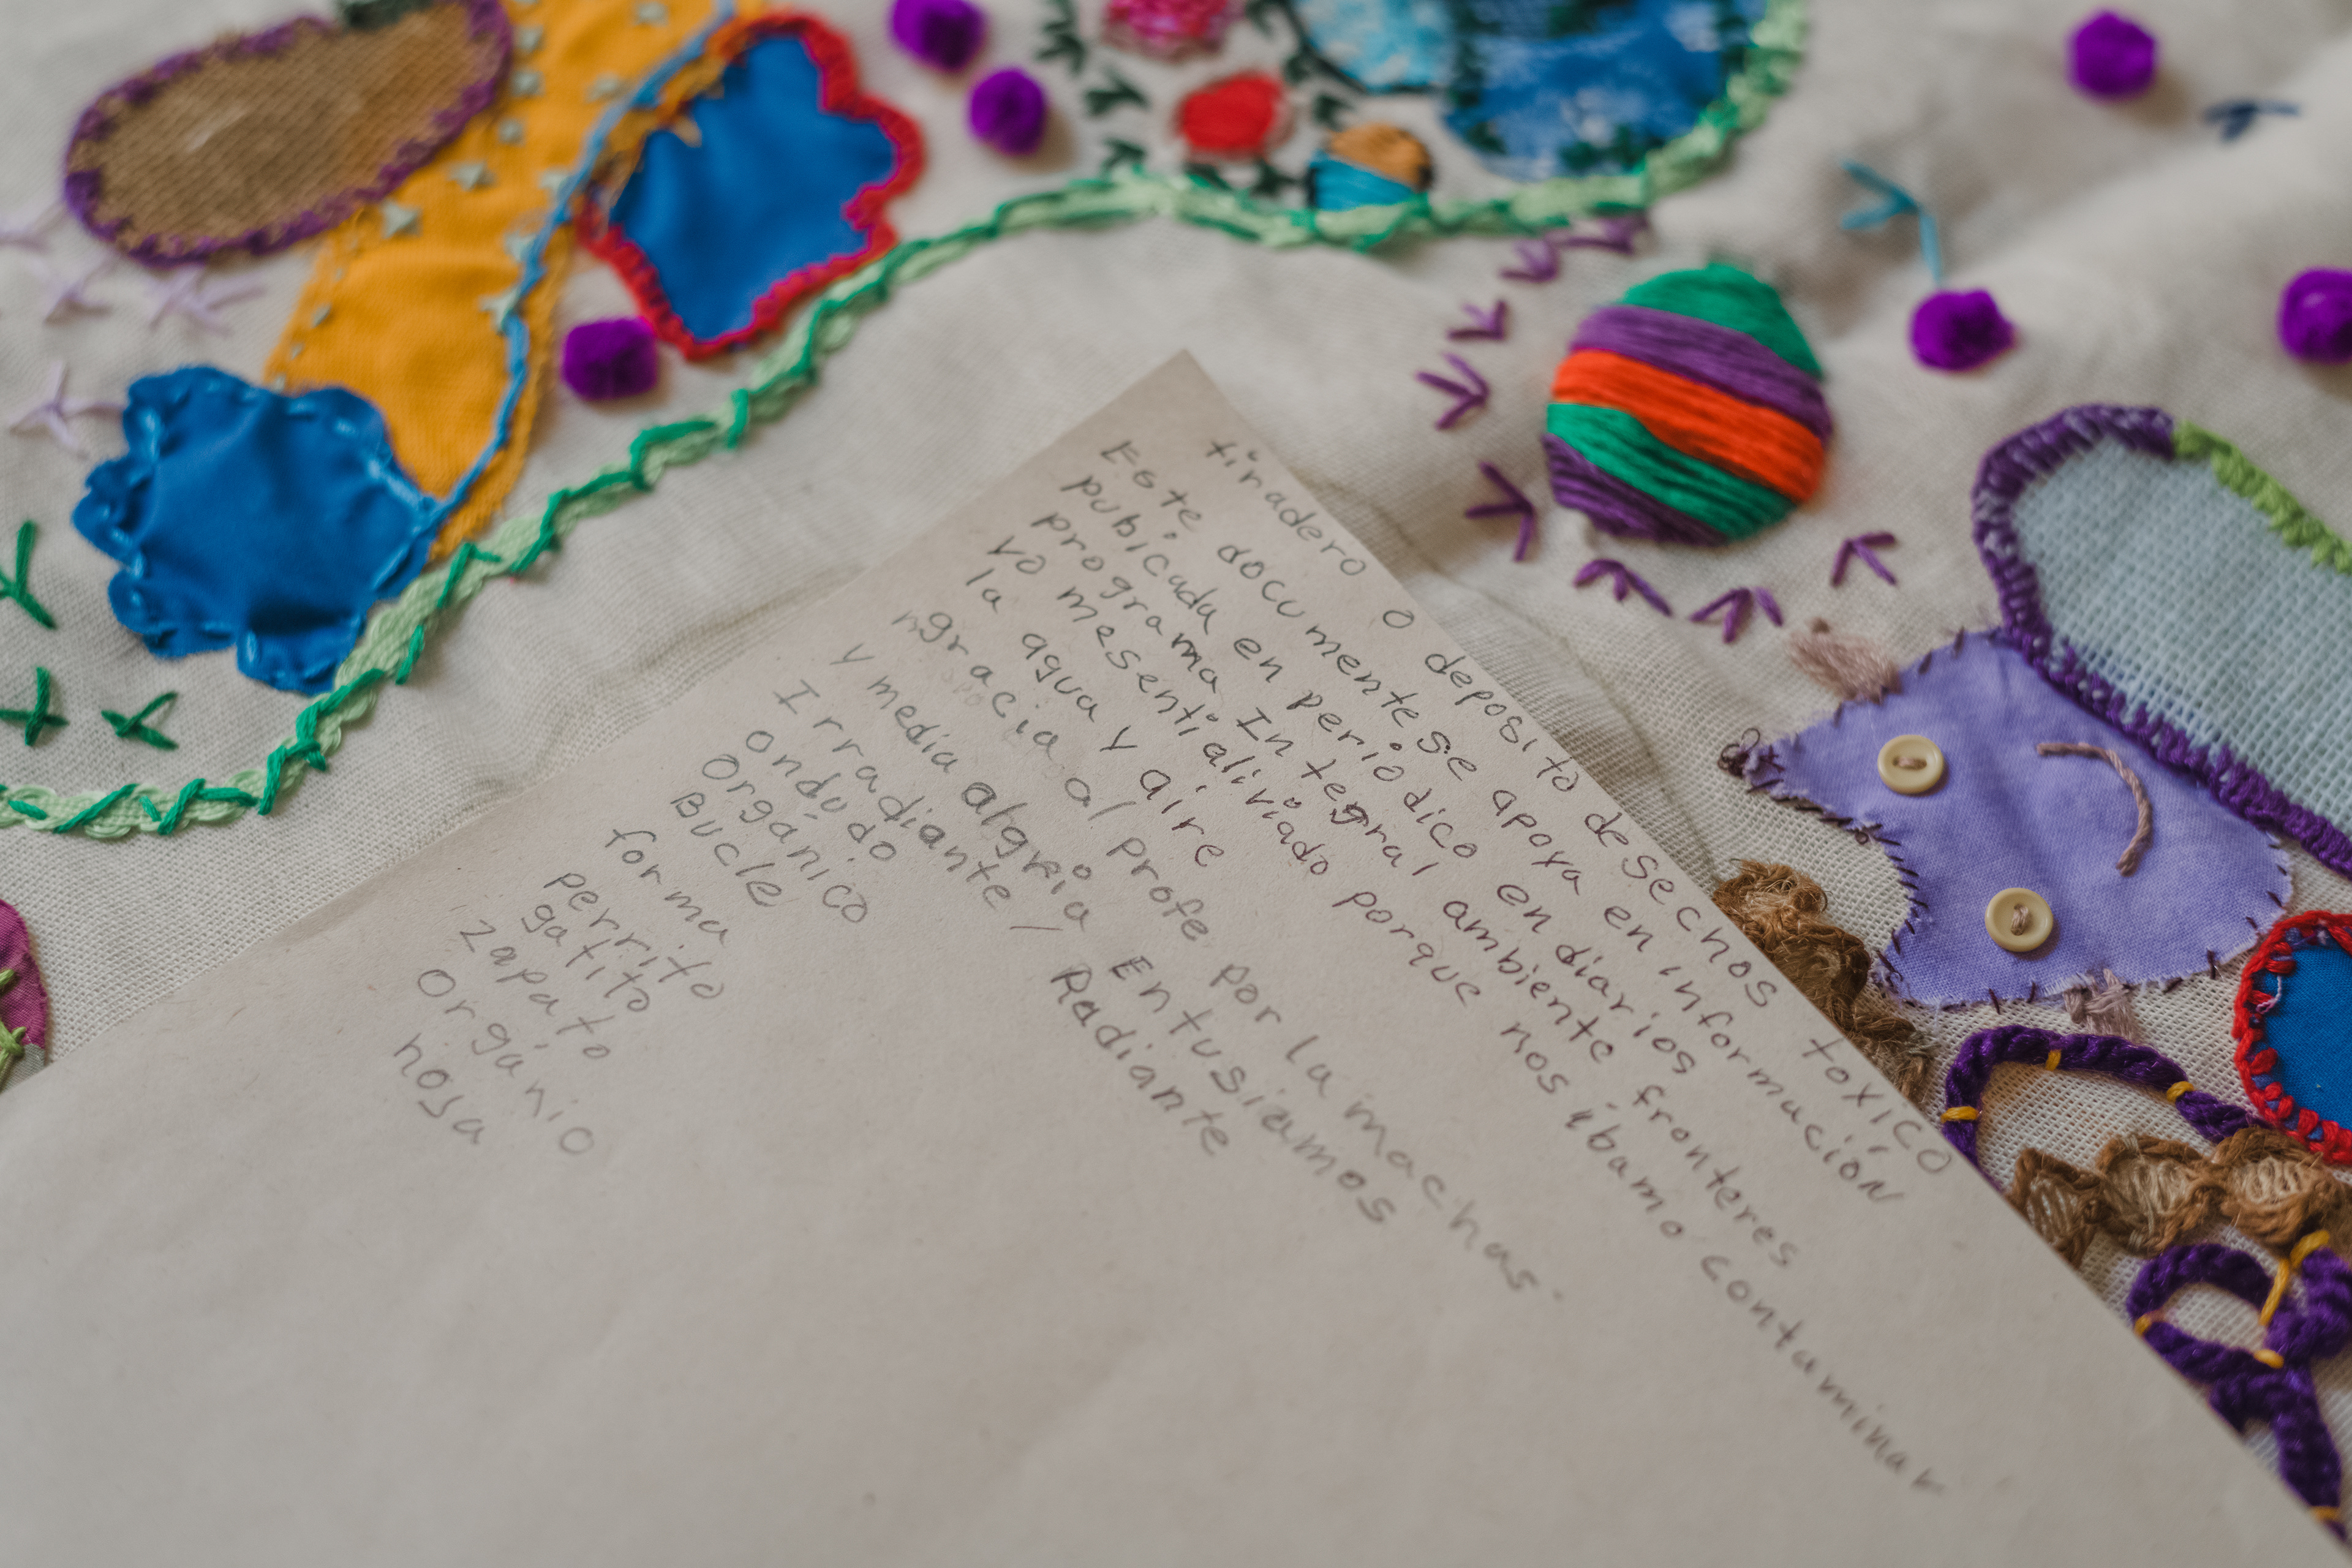 tiradero o deposito desechos toxico
Este documentese apoya en información
pubicada en periódico en diarios
programa Integral ambiente fronteres
yo mesenti aliviado porque nos ibamo contaminar
la agua y aire
ngracia al profe por la machas.
y media algria Entusiamos
Irradiante / Radiante
ondúdo
Orgánico
Bucle
forma
perrito
gatito
zapato
Orgánio